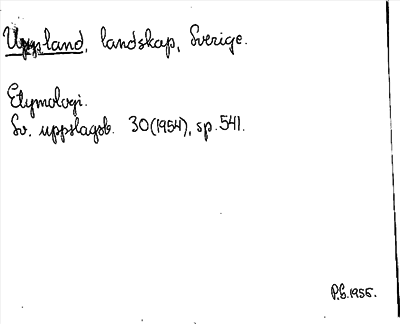 Uppland, landskap, Sverige.
Etymologi.
Sv. uppslagsb. 30(1954), sp.541.
P.G.1955.